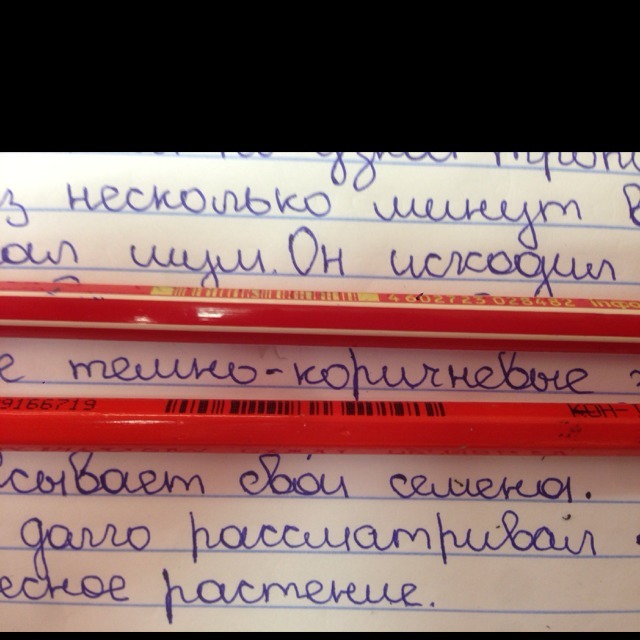 з несколько минут в
ал шум. Он исходил
4 602723 028482
е темно-коричневые
9166719 KOH-
сывает свои семена.
долго рассматривал
есное растение.